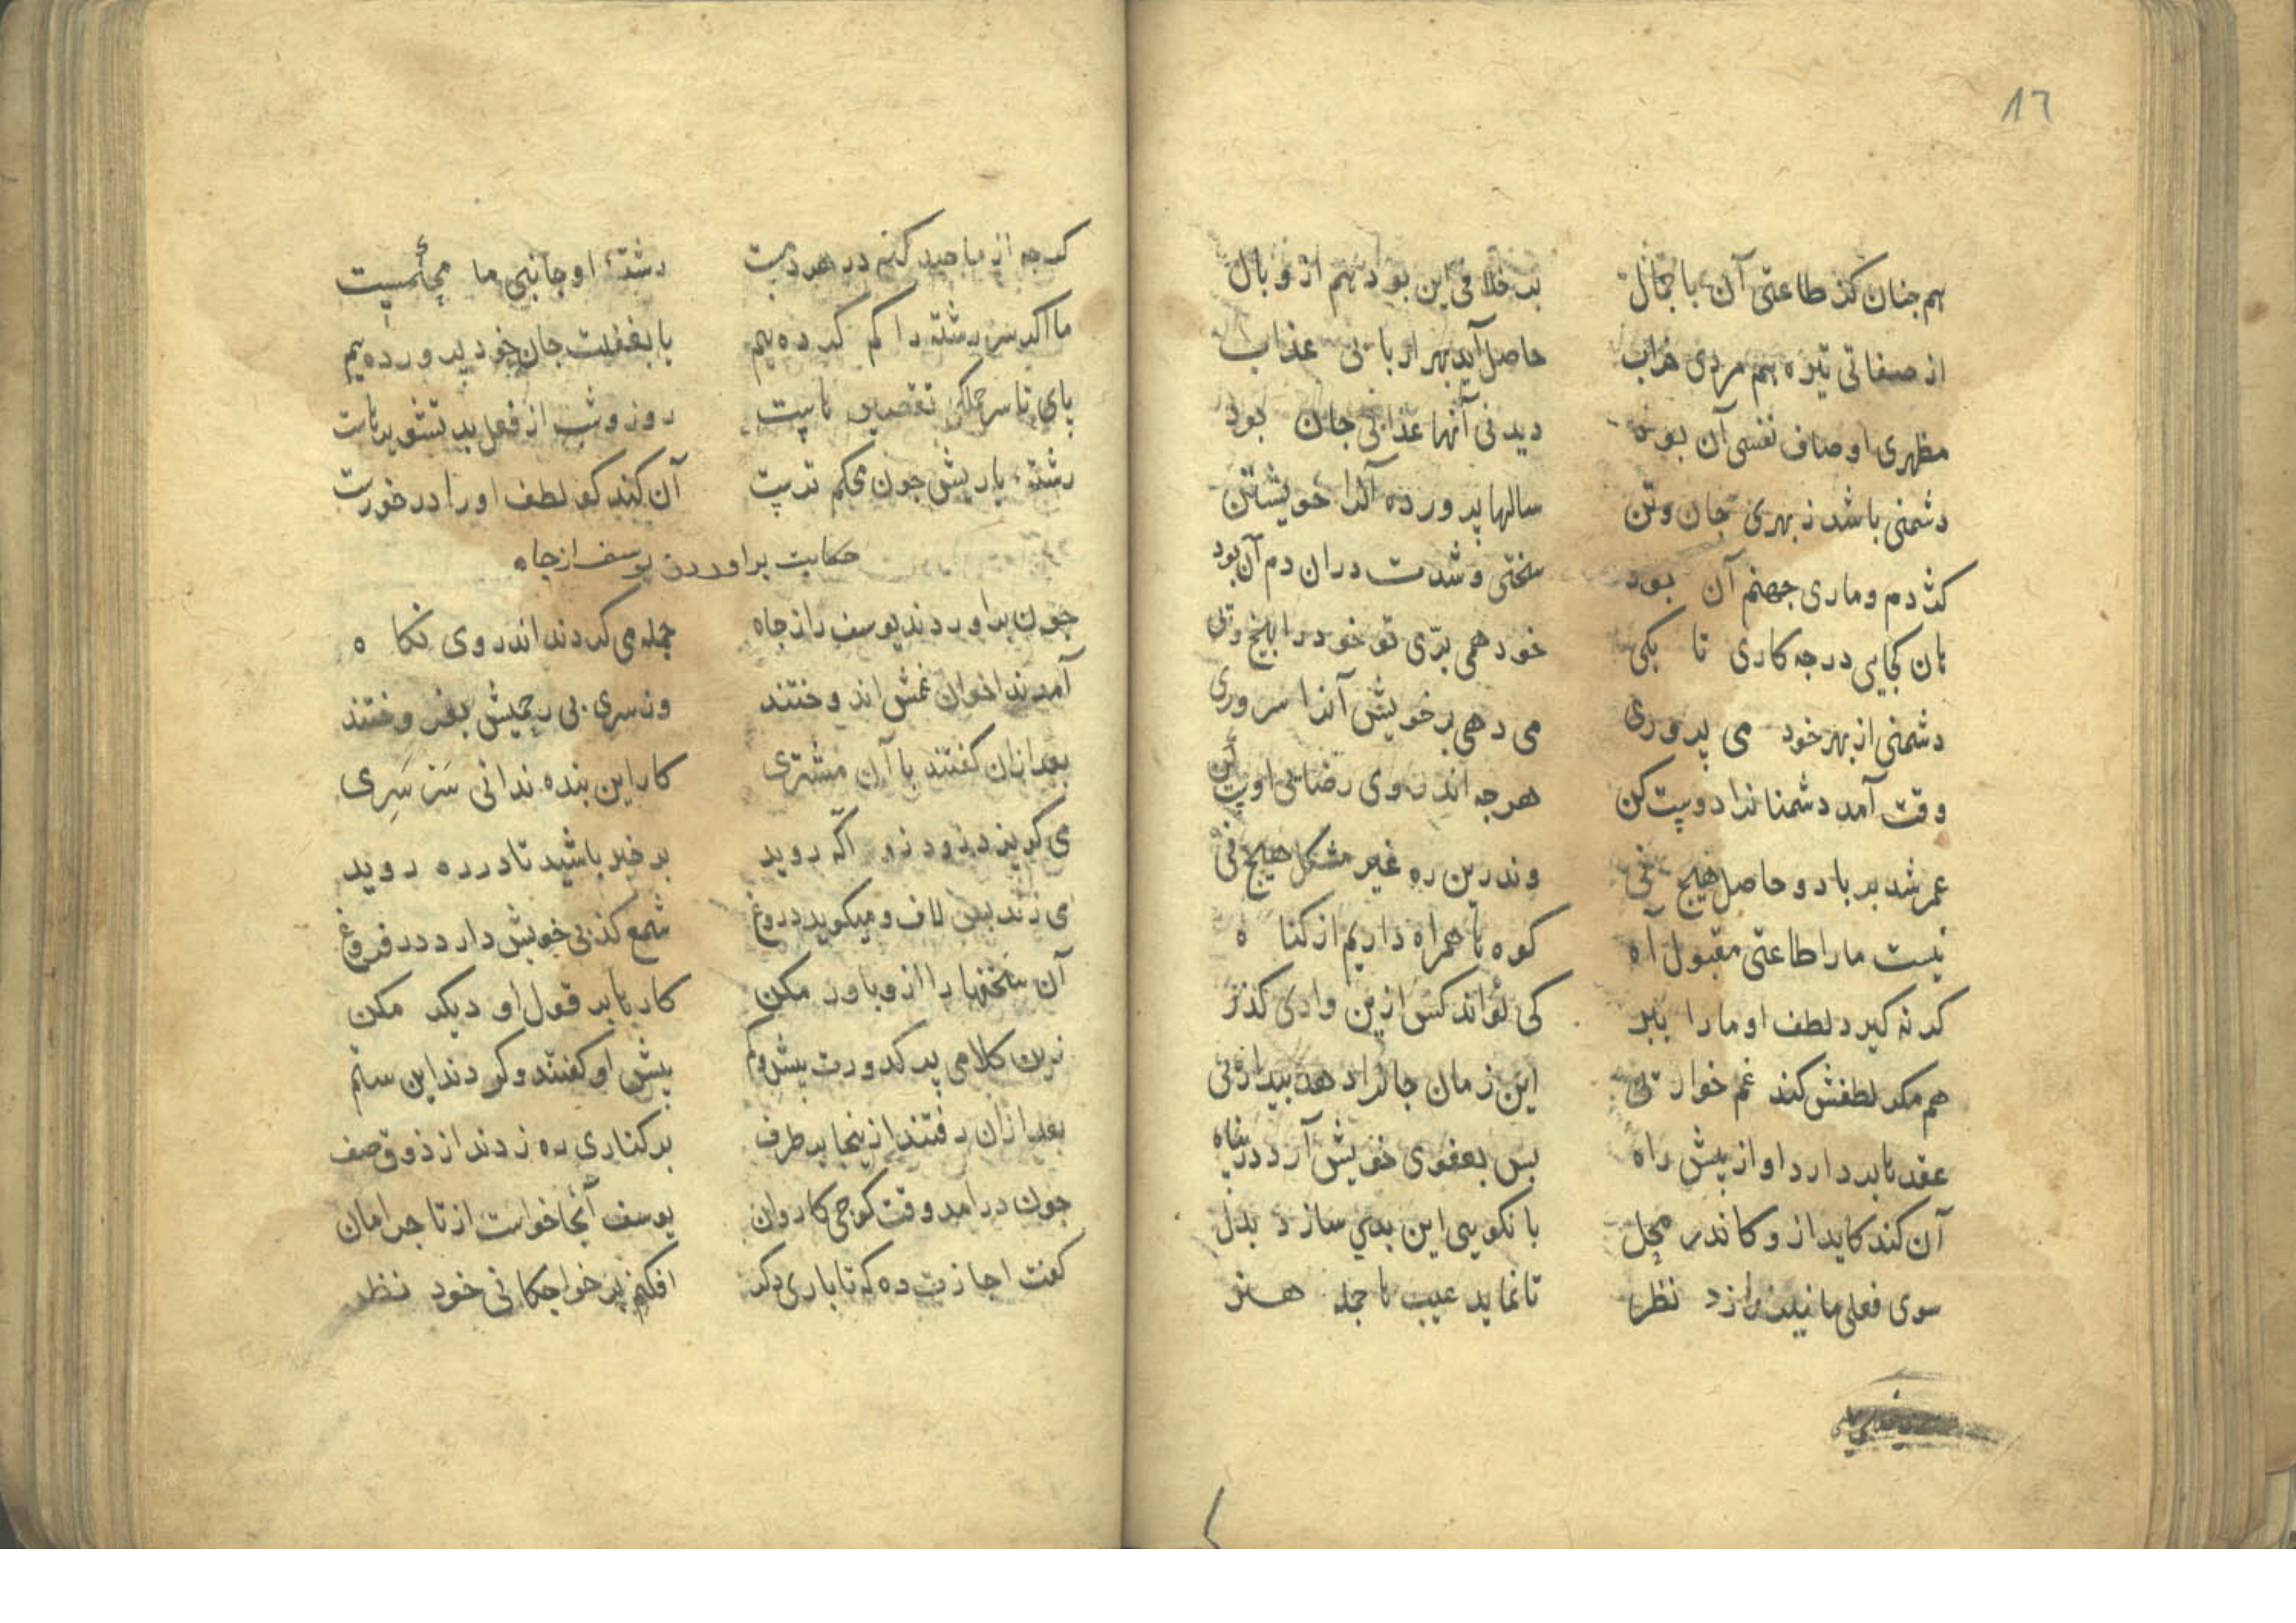 ١٦
هم جنان کذ طاعتی آن با جمال بر خلافی این بود هم از وبال
از صفاتی تیره هم مردی خراب حاصل آید بهر اربابی عذاب
مظهری اوصاف نفسی آن بود دیدنی آنها عذابی جان بود
دشمنی باشد ز بهری جان وتن سالها پرورده آنرا خویشتن
کژدم وماری جهنم آن بود سختی وشدت دران دم آن بود
هان کجایی درجه کاری تا بکی خود همی برّی تو خود را بیخ وپی
دشمنی از بهر خود می پروری می دهی بر خویش آنرا سروری
وقت آمد دشمنانرا دوست کن هرجه اندر وی رضایی اوست
عمر شد بر باد وحاصل هیچ نی وندرین ره غیر مشکل هیچ نی
نیست مارا طاعتی مقبول آه کوه با همراه داریم از کناه
کر نه کیرد لطف او مارا ببر کی تواند کس ازین وادی کذر
هم مکر لطفش کند غم خوارئی این زمان جانرا دهد بیدارئی
عقدها بردارد او از پیش راه پس بعفوی خویش آرد در پناه
آن کند کاید ازو کاندر محل با نکویی این بدی سازد بدل
سوی فعلی ما نیندازد نظر تا نماید عیب با جمله هنر
کرجه از ما صد کنه در هر دمیست رشتهٔ او جانبی ما محکمیست
ما اکر سر رشته را کم کرده یم با بغفلت جان خود پرورده یم
پای تا سر جملکی تقصیر ماست روز وشب از فعل بد تشویر ماست
رشتهٔ یاریش جون محکم ترست آن کند کو لطف اورا در خورست
حکایت براوردن یوسف از جاه
جون براوردند یوسف را ز جاه جمله می کردند اندر وی نکاه
آمدند اخوان غمش اندوختند وز سری بی رحمیش بفروختند
بعد ازان کفتند با آن مشتری کار این بنده ندانی سَرسَرِی
می کریزد زود زو آکه روید بر خبر باشید تا در ره روید
می زند بس لاف ومیکوید دروغ شمع کذبی خویش دارد در فروغ
آن سخنها را ازو باور مکن کار با بر قول او دیکر مکن
زین کلامی پر کدورت بیش وکم پیش او کفتند وکردند این ستم
بعد ازان رفتند از ینجا بر طرف بر کناری ره زدند از ذوق صف
جون درامد وقت کوچی کاروان یوسف آنجا خواست از تاجر امان
کفت اجازت ده که تا باری دکر افکنم بر خواجکانی خود نظر